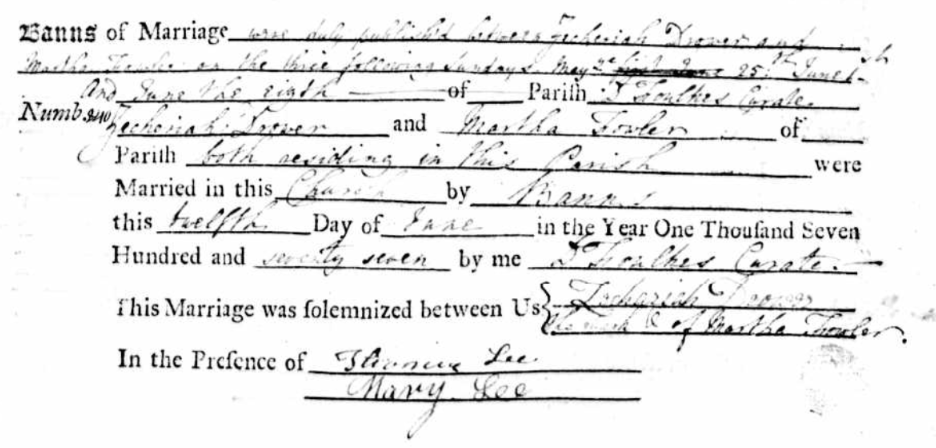 Banns of Marriage were duly publish'd between Zecheriah Drover and
Martha Fowler on the three following Sundays May the 25th June 1st
And June the eigth of Parish T Foulkes Curate
Numb. 240 Zecheriah Drover and Martha Fowler of
Parish both residing in this Parish were
Married in this Church by Banns
this twelfth Day of June in the Year One Thousand Seven
Hundred and seventy seven by me T Foulkes Curate
This Marriage was solemnized between Us Zechariah Drover
the mark C of Martha Fowler.
In the Presence of Lee
Mary Lee